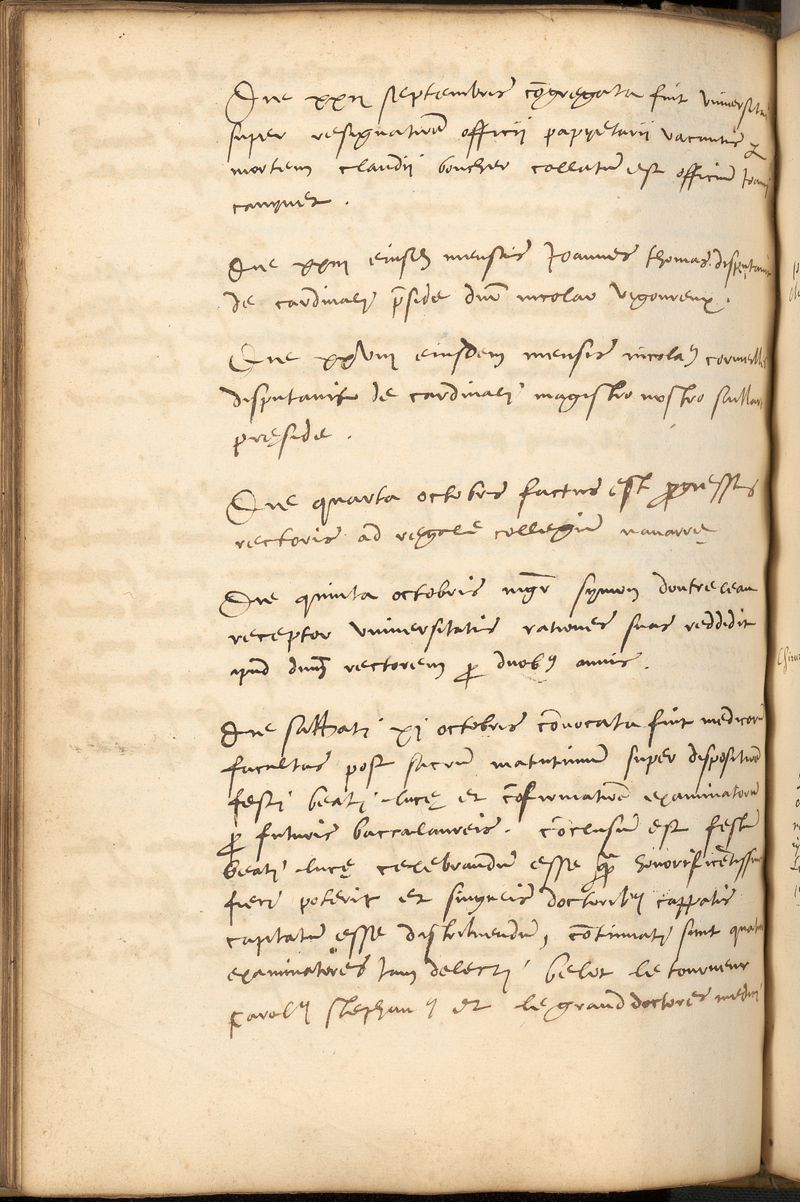 Die xxii septembris cõgregata fuit vniversitas
super resignatiõe officii papyetarii vacantis p
mortem claudii boucher collatũ est officiũ Joanni
canynet .
Die xxiii eiusdẽ mensis Joannes thomas disputavit
de cardinali p̃side dño nicolao vigoureux .
Die xxviii eiusdem mensis nicolaꝰ cornuelle
disputavit de cardinali magistro nostro
pręside .
Die quarta octobris factus est ꝓgressus
rectoris ad regale collegiũ navarrę
Die quinta octobris mgr̃ symon doutreleau
receptor vniversitatis rationes suas reddidit
apud dnũ rectorem ꝓ duobꝰ annis .
Die sabbati xi octobris cõvocata fuit medicorũ
facultas post sacrũ matutinũ super dispositiõe
festi beati lucę et cõfirmatiõe examinatorũ
ꝓ futuris baccalaureis . cõclusũ est festũ
beati lucę celebrandũ esse quã honorificẽtissime
fieri poterit et singulis doctoribꝰ cappatis
capitatũ esse distribuendũ, cõtinuati sunt quatuor
examinatores iam delecti belot le tourneur
Carolꝰ stephanꝰ et le grand doctores medici